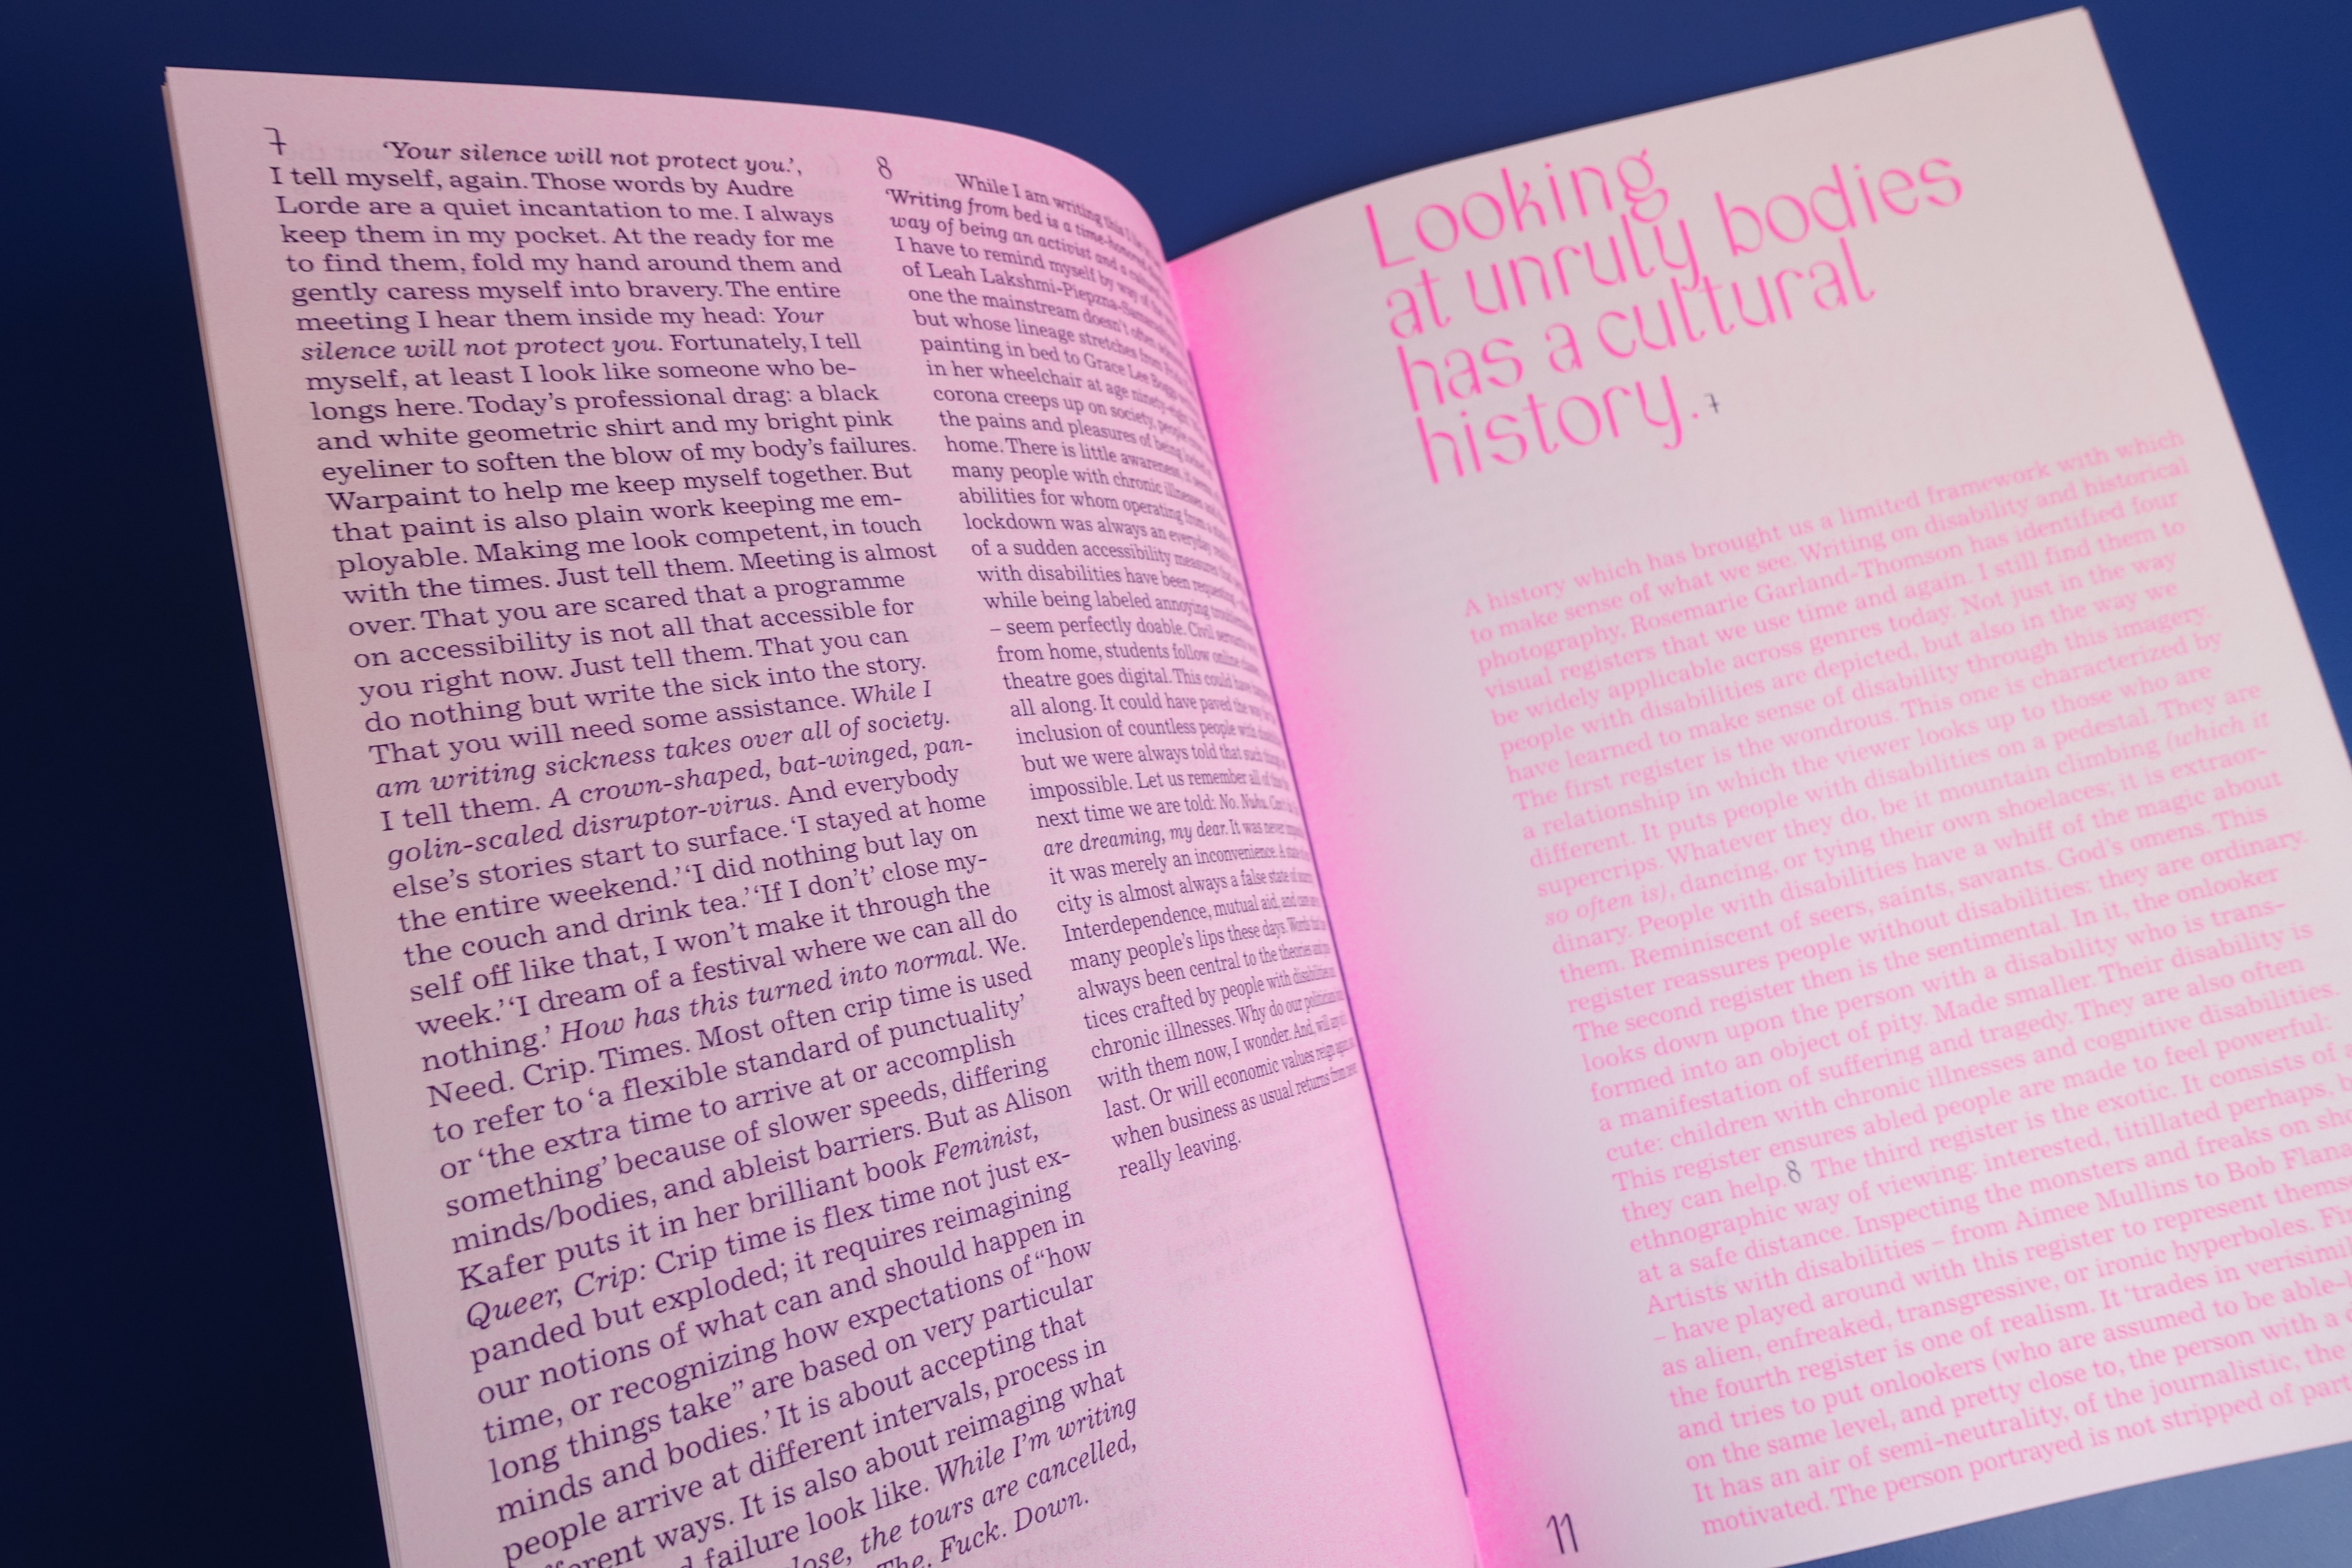 7 ‘Your silence will not protect you.’,
I tell myself, again. Those words by Audre
Lorde are a quiet incantation to me. I always
keep them in my pocket. At the ready for me
to find them, fold my hand around them and
gently caress myself into bravery. The entire
meeting I hear them inside my head: Your
silence will not protect you. Fortunately, I tell
myself, at least I look like someone who be-
longs here. Today’s professional drag: a black
and white geometric shirt and my bright pink
eyeliner to soften the blow of my body’s failures.
Warpaint to help me keep myself together. But
that paint is also plain work keeping me em-
ployable. Making me look competent, in touch
with the times. Just tell them. Meeting is almost
over. That you are scared that a programme
on accessibility is not all that accessible for
you right now. Just tell them. That you can
do nothing but write the sick into the story.
That you will need some assistance. While I
am writing sickness takes over all of society.
I tell them. A crown-shaped, bat-winged, pan-
golin-scaled disruptor-virus. And everybody
else’s stories start to surface. ‘I stayed at home
the entire weekend.’ ‘I did nothing but lay on
the couch and drink tea.’ ‘If I don’t’ close my-
self off like that, I won’t make it through the
week.’ ‘I dream of a festival where we can all do
nothing.’ How has this turned into normal. We.
Need. Crip. Times. Most often crip time is used
to refer to ‘a flexible standard of punctuality’
or ‘the extra time to arrive at or accomplish
something’ because of slower speeds, differing
minds/bodies, and ableist barriers. But as Alison
Kafer puts it in her brilliant book Feminist,
Queer, Crip: Crip time is flex time not just ex-
panded but exploded; it requires reimagining
our notions of what can and should happen in
time, or recognizing how expectations of “how
long things take” are based on very particular
minds and bodies.’ It is about accepting that
people arrive at different intervals, process in
ways. It is also about reimaging what
failure look like. While I’m writing
the tours are cancelled,
The. Fuck. Down.
8 While I am writing this I
‘Writing from bed is a time-honored
way of being an activist and a
I have to remind myself by way of
of Leah Lakshmi-Piepzna-
one the mainstream doesn’t often
but whose lineage stretches from
painting in bed to Grace Lee Boggs
in her wheelchair at age
corona creeps up on society, people
the pains and pleasures of being
home. There is little awareness, it
many people with chronic illnesses
abilities for whom operating from
lockdown was always an everyday
of a sudden accessibility measures
with disabilities have been
while being labeled annoying
– seem perfectly doable. Civil
from home, students follow online
theatre goes digital. This could
all along. It could have paved the
inclusion of countless people with
but we were always told that such
impossible. Let us remember all of
next time we are told: No.
are dreaming, my dear. It was never
it was merely an inconvenience. A
city is almost always a false state of
Interdependence, mutual aid, and
many people’s lips these days. Words
always been central to the theories
tices crafted by people with disabilities
chronic illnesses. Why do our politicians
with them now, I wonder. And, will
last. Or will economic values reign
when business as usual returns from
really leaving.
Looking
at unruly bodies
has a cultural
history. 7
A history which has brought us a limited framework with which
to make sense of what we see. Writing on disability and historical
photography, Rosemarie Garland-Thomson has identified four
visual registers that we use time and again. I still find them to
be widely applicable across genres today. Not just in the way
people with disabilities are depicted, but also in the way we
have learned to make sense of disability through this imagery.
The first register is the wondrous. This one is characterized by
a relationship in which the viewer looks up to those who are
different. It puts people with disabilities on a pedestal. They are
supercrips. Whatever they do, be it mountain climbing (which it
so often is), dancing, or tying their own shoelaces; it is extraor-
dinary. People with disabilities have a whiff of the magic about
them. Reminiscent of seers, saints, savants. God’s omens. This
register reassures people without disabilities: they are ordinary.
The second register then is the sentimental. In it, the onlooker
looks down upon the person with a disability who is trans-
formed into an object of pity. Made smaller. Their disability is
a manifestation of suffering and tragedy. They are also often
cute: children with chronic illnesses and cognitive disabilities.
This register ensures abled people are made to feel powerful:
they can help. 8 The third register is the exotic. It consists of
ethnographic way of viewing: interested, titillated perhaps,
at a safe distance. Inspecting the monsters and freaks on
Artists with disabilities – from Aimee Mullins to Bob
– have played around with this register to represent
as alien, enfreaked, transgressive, or ironic hyperboles.
the fourth register is one of realism. It ‘trades in
and tries to put onlookers (who are assumed to be
on the same level, and pretty close to, the person with a
It has an air of semi-neutrality, of the journalistic, the
motivated. The person portrayed is not stripped of
11